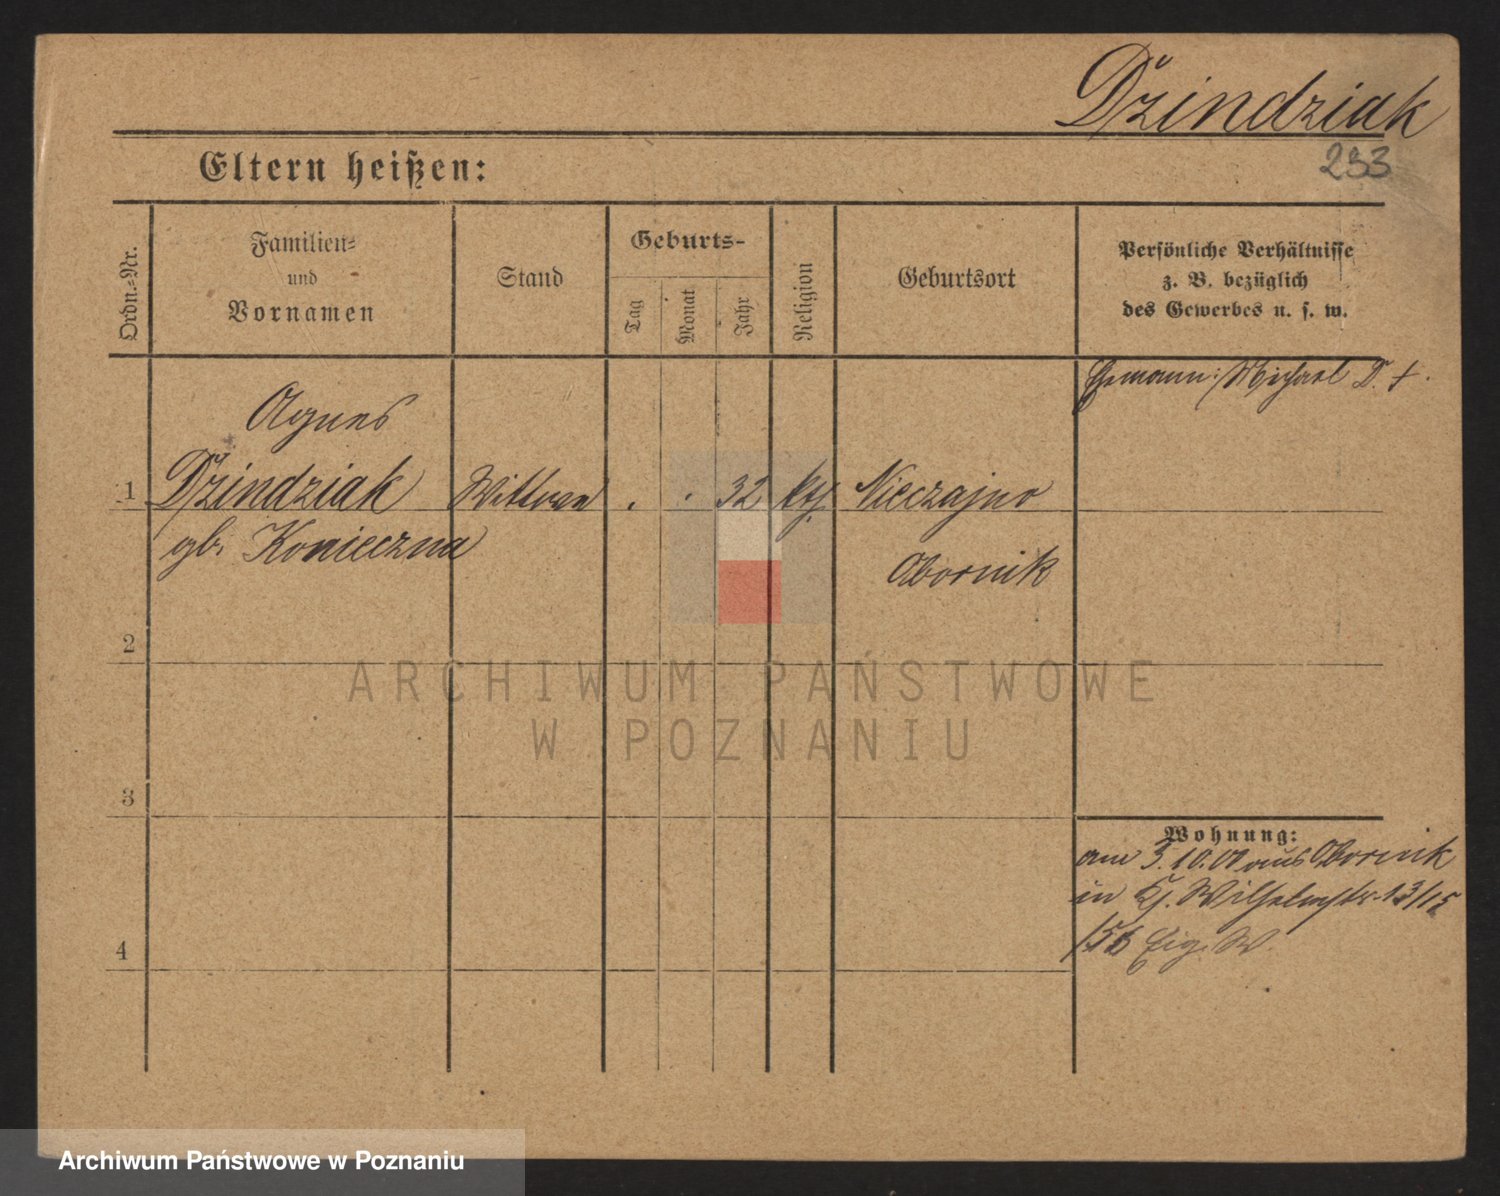 Dzindziak
233
Eltern heißen:
Ordn.-Nr.
Familien-
und
Vornamen
Stand
Geburts-
Tag
Monat
Jahr
Religion
Geburtsort
Persönliche Verhältnisse
z. B. bezüglich
des Gewerbes u. s. w.
Ehemann: Michael D. †.
Agnes
1 Dzindziak Wittwe . . 32 kth. Nieczajno
gb. Konieczna
Obornik
2
ARCHIWUM PAŃSTWOWE
W POZNANIU
3
Wohnung:
am 3.10.00 aus Obornik
in Kj. Wilhelmstr. 13/15
Eig. W.
4
Archiwum Państwowe w Poznaniu